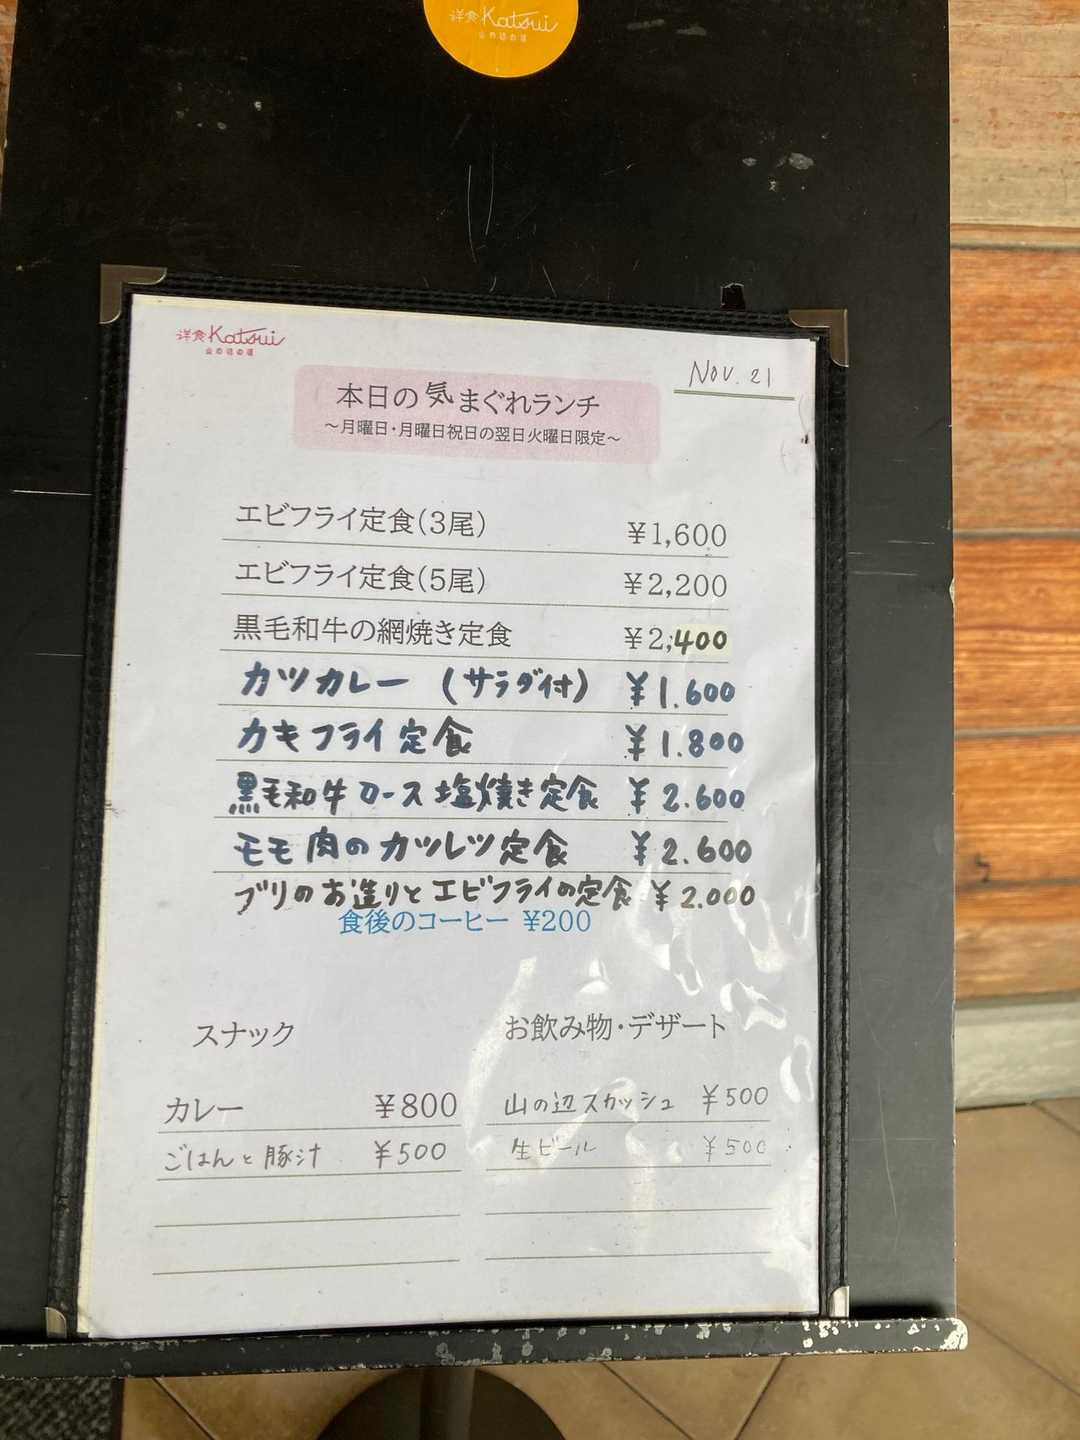 洋食Katsui
山の辺の道
洋食Katsui
山の辺の道
Nov. 21
本日の気まぐれランチ
～月曜日・月曜日祝日の翌日火曜日限定～
エビフライ定食(3尾) ¥1,600
エビフライ定食(5尾) ¥2,200
黒毛和牛の網焼き定食 ¥2,400
カツカレー (サラダ付) ¥1.600
カキフライ定食 ¥1.800
黒毛和牛ロース塩焼き定食 ¥2.600
モモ肉のカツレツ定食 ¥2.600
ブリのお造りとエビフライの定食 ¥2.000
食後のコーヒー ¥200
スナック
カレー ¥800
ごはんと豚汁 ¥500
お飲み物・デザート
山の辺スカッシュ ¥500
生ビール ¥500